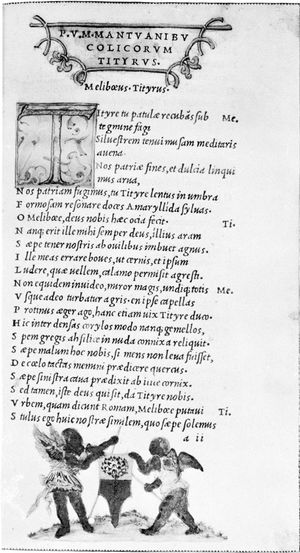 P. V. M. MANTVANI BV
COLICORVM
TITYRVS.
Melibœus. Tityrus.
TItyre tu patulæ recubãs sub Me.
tegmine fagi
Siluestrem tenui musam meditaris
auena
Nos patriæ fines, et dulcia linqui
mus arua,
Nos patriam fugimus, tu Tityre lentus in umbra
Formosam resonare doces Amaryllida syluas.
O Melibœe, deus nobis hæc ocia fecit. Ti.
Nanq; erit ille mihi semper deus, illius aram
Sæpe tener nostris ab ouilibus imbuet agnus.
Ille meas errare boues, ut cernis, et ipsum
Ludere, quæ uellem, calamo permisit agresti.
Non equidem inuideo, miror magis, undiq; totis Me.
Vsque adeo turbatur agris. en ipse capellas
Protinus æger ago, hanc etiam uix Tityre duco.
Hic inter densas corylos modo nanq; gemellos,
Spem gregis ah silice in nuda connixa reliquit.
Sæpe malum hoc nobis, si mens non leua fuisset,
De cœlo tactas memini prædicere quercus.
Sæpe sinistra caua prædixit ab ilice cornix.
Sed tamen, iste deus qui sit, da Tityre nobis.
Vrbem, quam dicunt Romam, Melibœe putaui Ti.
Stultus ego huic nostræ similem, quo sæpe solemus
a ii